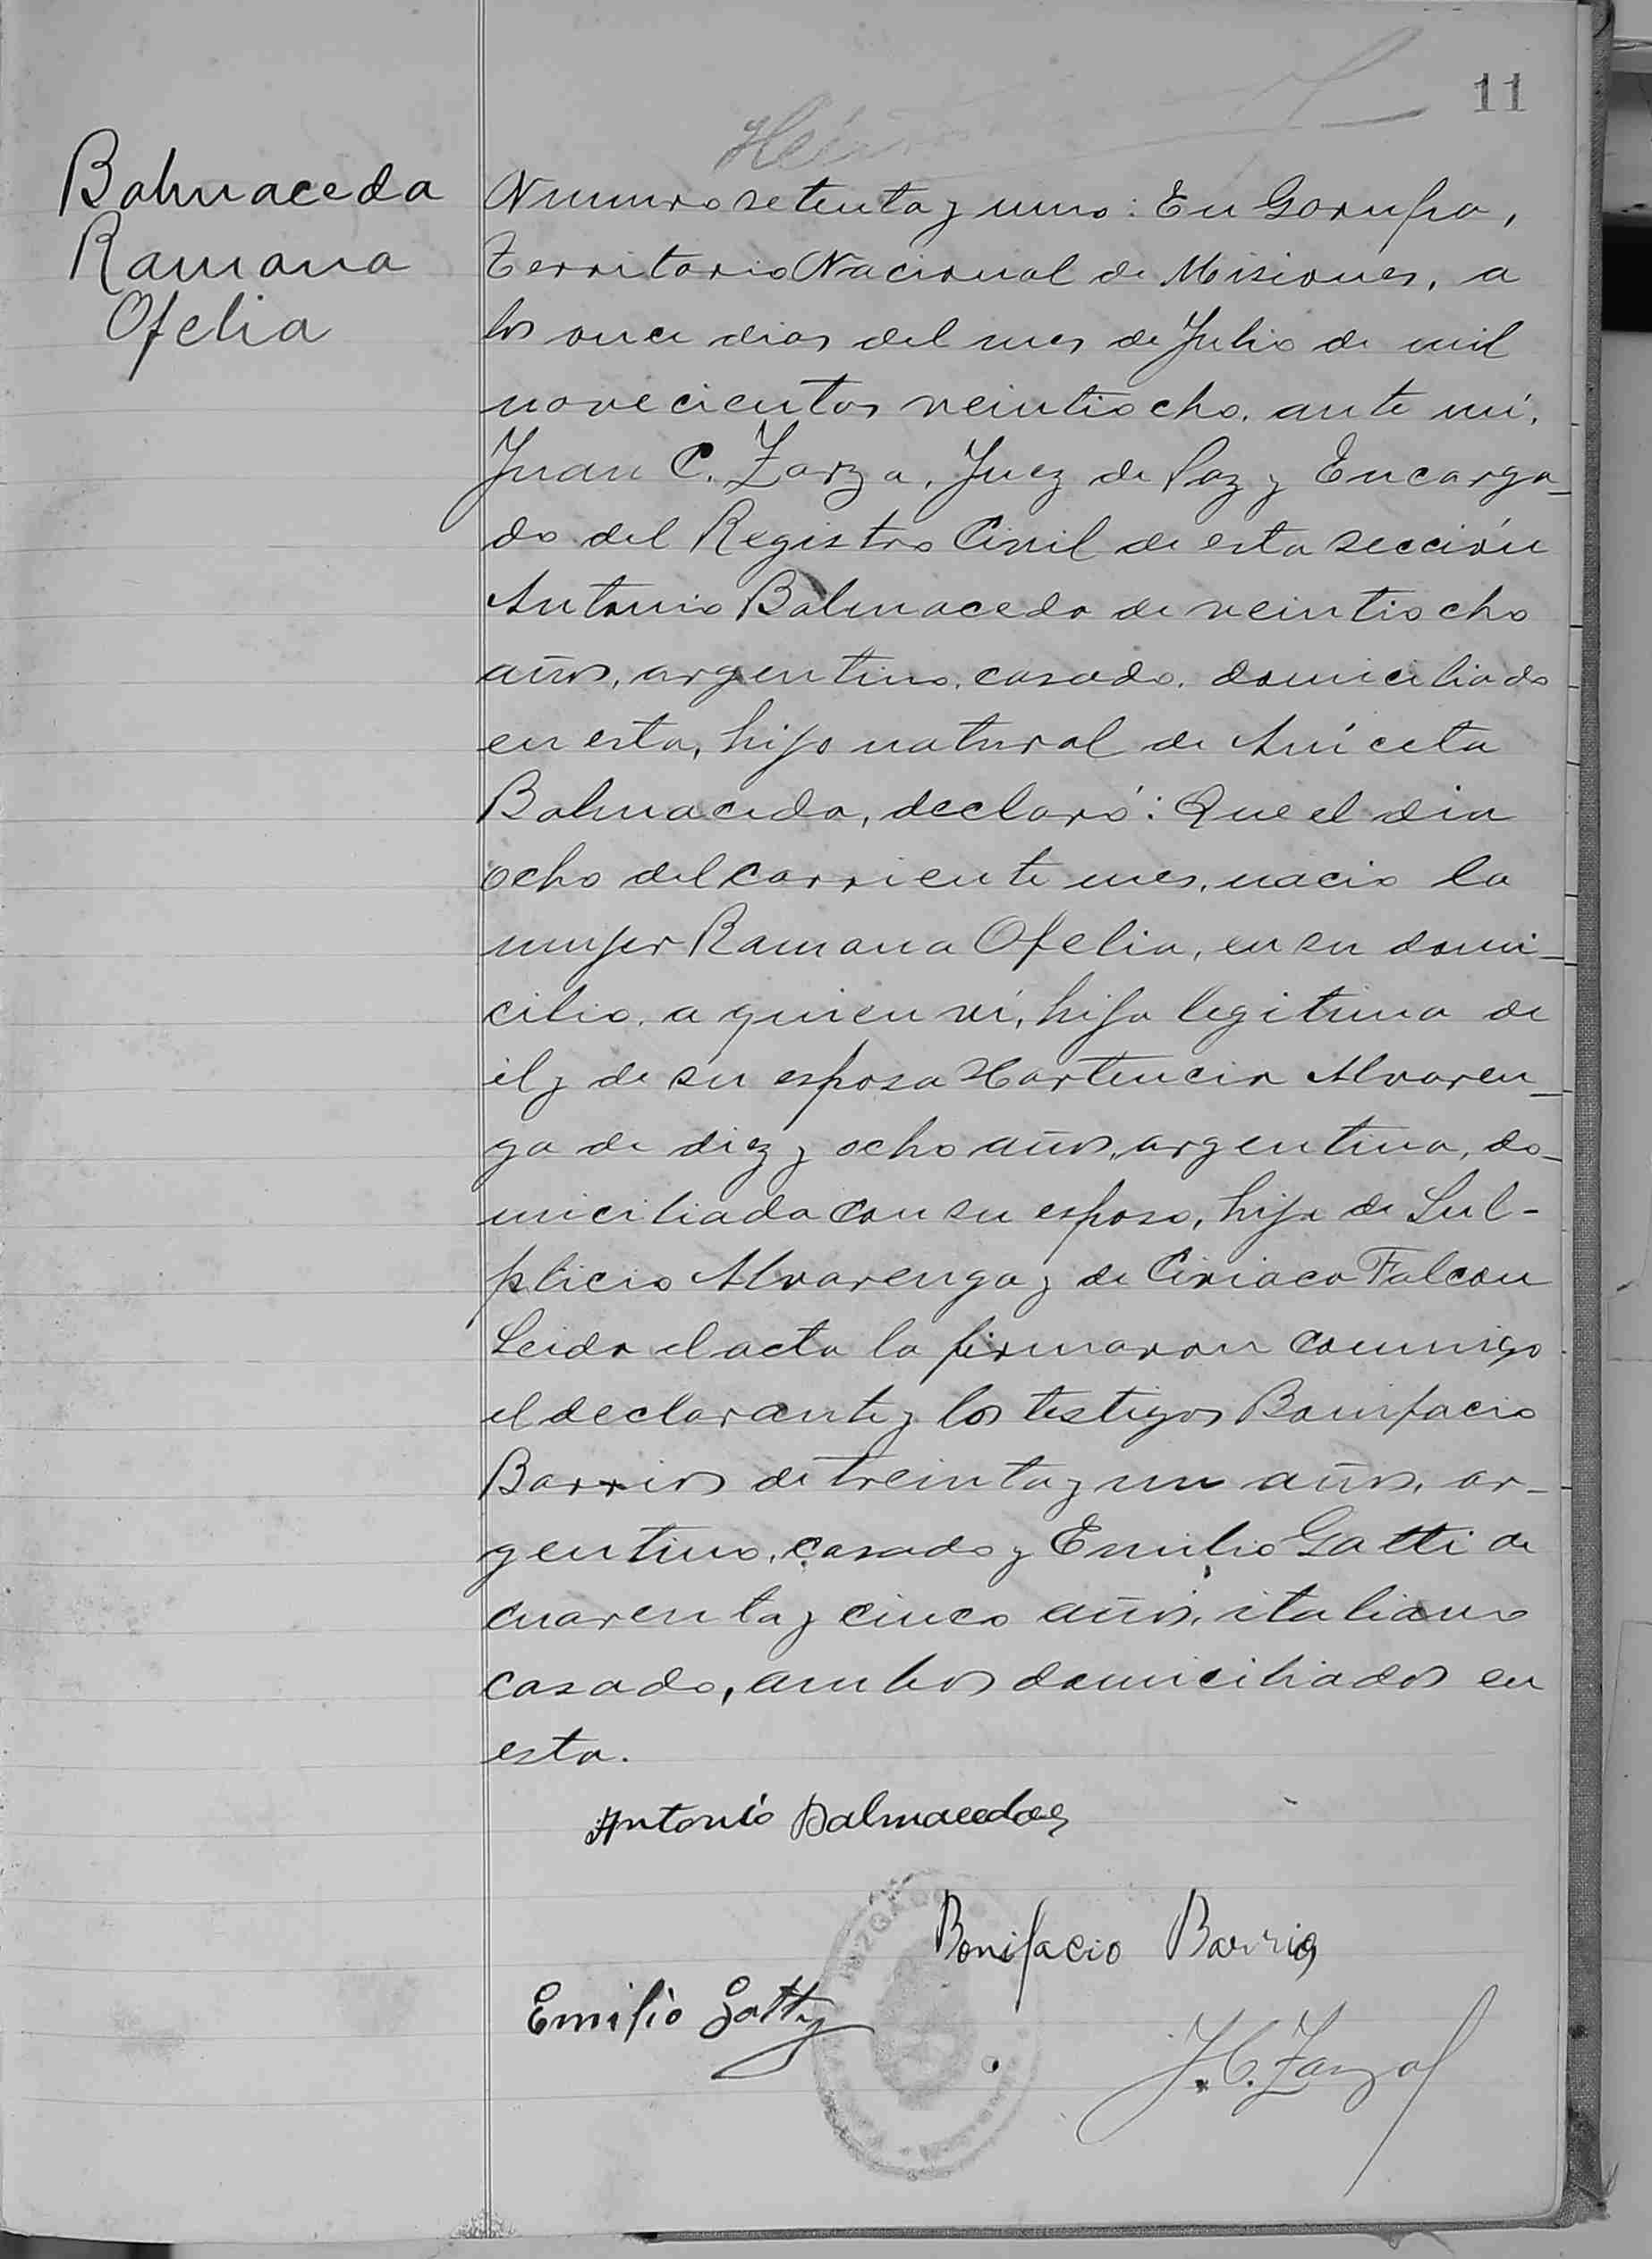 11
Balmaceda
Ramona
Ofelia
Numero setenta y uno: En Garupa,
Territorio Nacional de Misiones, a
los once dias del mes de Julio de mil
novecientos veintiocho, ante mí,
Juan C. Zarza, Juez de Paz y Encarga-
do del Registro Civil de esta sección
Antonio Balmaceda de veintiocho
años, argentino, casado, domiciliado
en esta, hijo natural de Aniceta
Balmaceda, declaró: Que el dia
ocho del corriente mes, nacio la
mujer Ramona Ofelia, en su domi-
cilio, a quien ví, hija legitima de
él y de su esposa Hortencia Alvaren-
ga de diez y ocho años, argentina, do-
miciliada con su esposo, hija de Sul-
plicio Alvarenga y de Ciriaca Falcon
Leida el acta la firmaron conmigo
el declarante y los testigos Bonifacio
Barrios de treinta y un años, ar-
gentino, casado y Emilio Gatti de
cuarenta y cinco años, italiano
casado, ambos domiciliados en
esta.
Antonio Balmaceda
Bonifacio Barrios
Emilio Gatty
J. C. Zarza